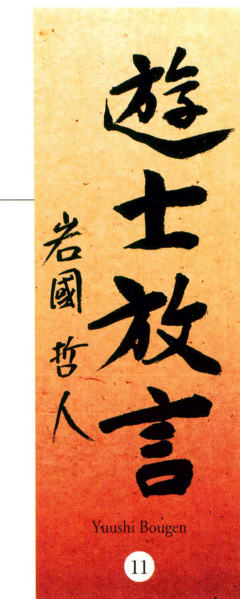 遊士放言
岩國哲人
Yuushi Bougen
11